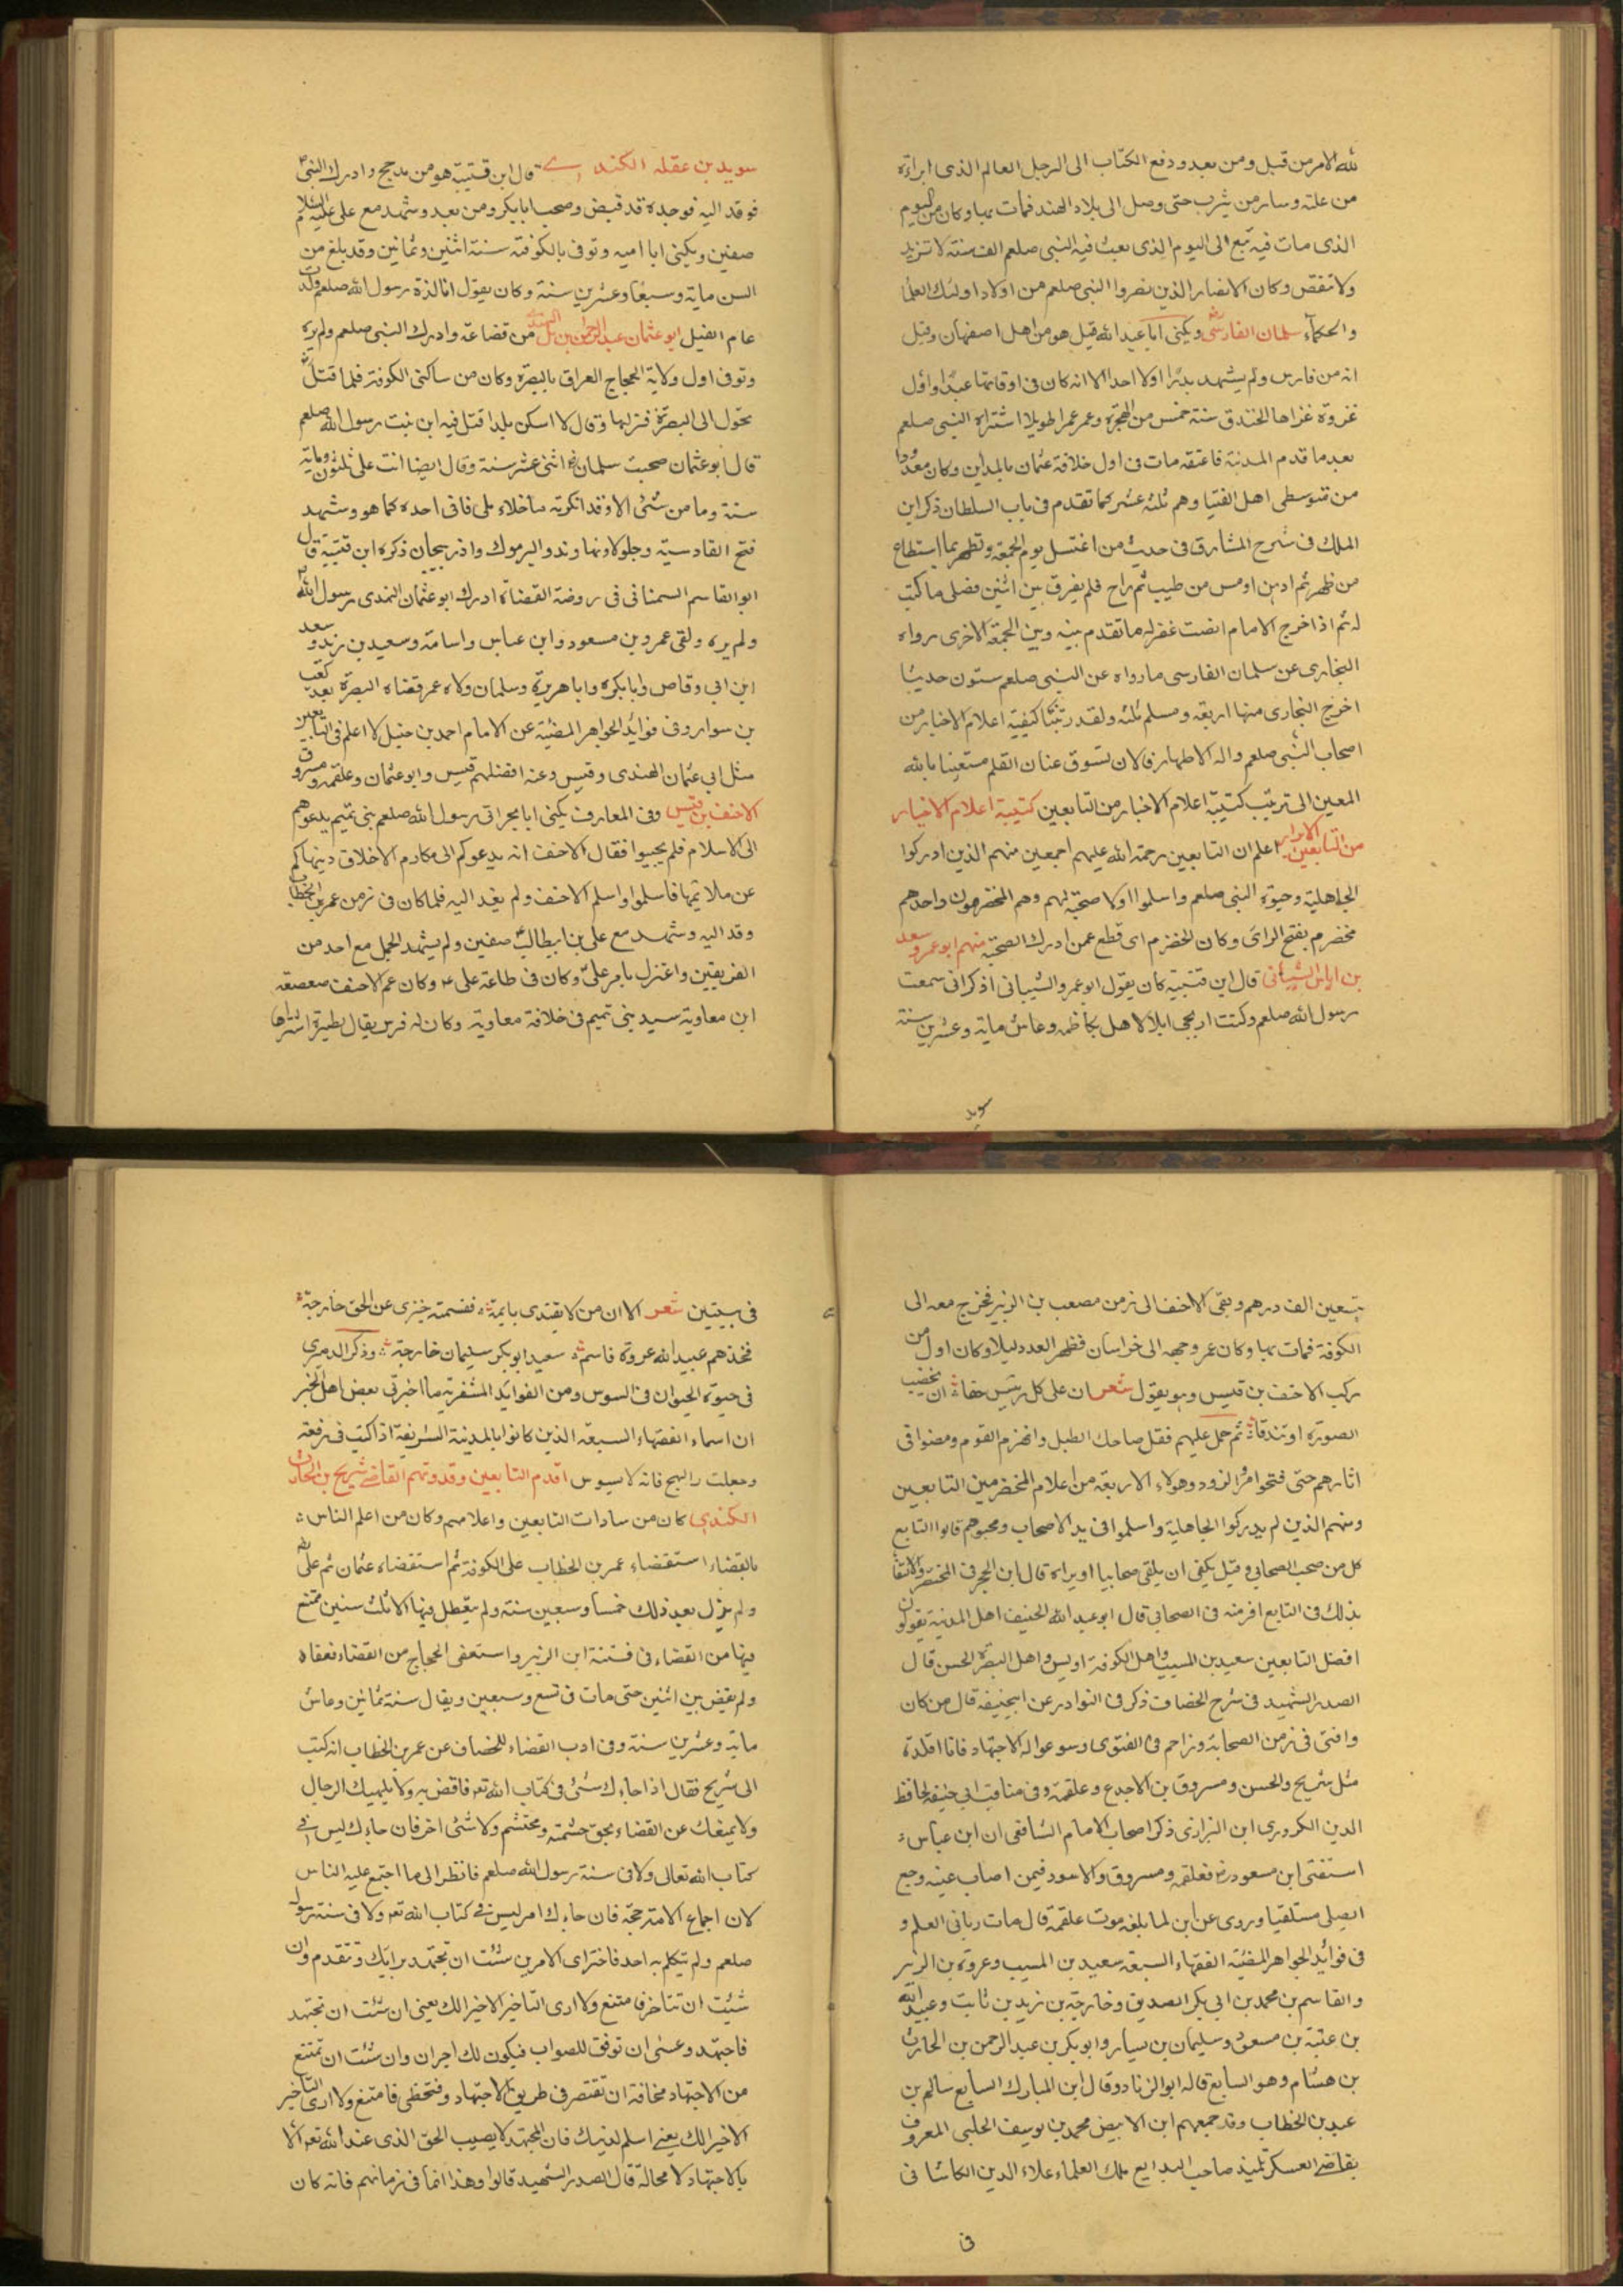 لله الامر من قبل ومن بعد ودفع الكتاب الى الرجل العالم الذى ابراءه
من علته وسار من يثرب حتى وصل الى بلاد الهند فمات بها وكان من اليوم
الذى مات فيه تبع الى اليوم الذى بعث فيه النبى صلعم الف سنة لا تزيد
ولا تنقص وكان الانصار الذين نصروا النبى صلعم من اولاد اولئك العلما
والحكماء سلمان الفارسى ويكنى ابا عبد الله قيل هو من اهل اصفهان وقيل
انه من فارس ولم يشهد بدرا اولا احدا الا انه كان فى اوقاتها عبدا واول
غزوة غزاها الخندق سنة خمس من الهجرة وعمر عمرا طويلا اشتراه النبى صلعم
بعد ما قدم المدينة فاعتقه مات فى اول خلافة عثمان بالمداين وكان معدودا
من متوسطى اهل الفتيا وهم ثلثة عشر كما تقدم فى باب السلطان ذكر ابن
الملك فى شرح المشارق فى حديث من اغتسل يوم الجمعة وتطهر بما استطاع
من طهر ثم ادهن او مس من طيب ثم راح فلم يفرق بين اثنين فصلى ما كتب
له ثم اذا خرج الامام انصت غفر له ما تقدم بينه وبين الجمعة الاخرى رواه
البخارى عن سلمان الفارسى ما رواه عن النبى صلعم ستون حديثا
اخرج البخارى منها اربعة ومسلم ثلثة ولقد رتبنا كتيبة اعلام الاخيار من
اصحاب النبى صلعم واله الاطهار فالان نسوق عنان القلم مستعينا بالله
المعين الى ترتيب كتيبة اعلام الاخيار من التابعين كتيبة اعلام الاخيار
من التابعين الابرار اعلم ان التابعين رحمة الله عليهم اجمعين منهم الذين ادركوا
الجاهلية وحيوة النبى صلعم واسلموا ولا صحبة لهم وهم المخضرمون واحدهم
مخضرم بفتح الراى وكان الخضرم اى قطع عمن ادرك الصحبة منهم ابو عمرو سعد
بن اياس الشيبانى قال ابن قتيبة كان يقول ابو عمرو الشيبانى اذكر انى سمعت
رسول الله صلعم وكنت ارعى ابلا لاهلى بكاظمه وعاش ماية وعشرين سنة
سويد
سويد بن عقله الكندى قال ابن قتيبة هو من مذحج وادرك النبى
فوفد اليه فوجده قد قبض وصحب ابا بكر ومن بعد وشهد مع على عليه السلام
صفين ويكنى ابا اميه وتوفى بالكوفة سنة اثنين وثمانين وقد بلغ من
السن ماية وسبعا وعشرين سنة وكان يقول انا لدة رسول الله صلعم ولدت
عام الفيل ابو عثمان عبد الرحمن بن مل النهدى من قضاعة وادرك النبى صلعم ولم يره
وتوفى اول ولاية الحجاج العراق بالبصرة وكان من ساكنى الكوفة فلما قتل
تحول الى البصرة فنزلها وقال لا اسكن بلدا قتل فيه ابن بنت رسول الله صلعم
قال ابو عثمان صحبت سلمان اثنى عشر سنة وقال ايضا اتت على ثلثون وماية
سنة وما من شئ الا وقد انكرته ما خلاء ملى فانى احده كما هو وشهد
فتح القادسية وجلولا ونهاوند واليرموك واذربيجان ذكره ابن قتيبة قال
ابو القاسم السمنانى فى روضة القضاة ادرك ابو عثمان النهدى رسول الله
ولم يره ولقى عمر وبن مسعود وابن عباس واسامة وسعيد بن زيد وسعد
ابن ابى وقاص وابا بكره وابا هريرة وسلمان ولاه عمر قضاه البصرة بعد كعب
بن سوار وفى فوايد الجواهر المضئية عن الامام احمد بن حنبل لا اعلم فى التابعين
مثل ابى عثمان الهندى وقيس وعنه افضلهم قيس وابو عثمان وعلقمه ومسروق
الاحنف بن قيس وفى المعارف يكنى ابا بحر اتى رسول الله صلعم بنى تميم يدعوهم
الى الاسلام فلم يجيبوا فقال الاحنف انه يدعوكم الى مكارم الاخلاق وينهاكم
عن ملائمها فاسلموا واسلم الاحنف ولم يفد اليه فلما كان فى زمن عمر بن الخطاب
وفد اليه وشهد مع على بن ابيطالب صفين ولم يشهد الجمل مع احد من
الفريقين واعتزل بامر على وكان فى طاعة على وكان عم الاحنف صعصعة
ابن معاوية سيد بنى تميم فى خلافة معاوية وكان له فرس يقال
بتسعين الف درهم وبقى الاحنف الى زمن مصعب بن الزبير فخرج معه الى
الكوفة فمات بها وكان عمر وجهه الى خراسان فظهر العدد ليلا وكان اول من
ركب الاحنف بن قيس وهو يقول شعر ان على كل رئيس حقا ان يخضب
الصورة او تندقا ثم حمل عليهم فقتل صاحب الطبل وانهزم القوم ومضوا فى
اثارهم حتى فتحوا مرو الزود وهولاء الاربعة من اعلام المخضرمين التابعين
ومنهم الذين لم يدركوا الجاهلية واسلموا فى يد الاصحاب وصحبوهم قالوا التابع
كل من صحب الصحابى وقيل يكفى ان يلقى صحابيا او يراه قال ابن الحجر فى المختصر
بذلك فى التابع اقر منه فى الصحابى قال ابو عبد الله الحنيف اهل المدنية يقولون
افضل التابعين سعيد بن المسيب واهل الكوفة اويس واهل البصرة الحسن قال
الصدر الشهيد فى شرح الخصاف ذكر فى النوادر عن ابيحنيفة قال من كان
وافتى فى زمن الصحابة وزاحم فى الفتوى وسوغوا له الاجتهاد فانا اقلده
مثل شريح والحسن ومسروق بن الاجدع وعلقمة وفى مناقب ابى حنيفة لحافظ
الدين الكردرى ابن البزازى ذكر اصحاب الامام الشافعى ان ابن عباس
استفتى ابن مسعود فعلقمه ومسروق والاسود فيمن اصاب عينه وجع
ايصلى مستلقيا وروى عن ابن لما بلغه موت علقمة قال مات ربانى العلم و
فى فوائد الجواهر المضئية الفقهاء السبعة سعيد بن المسيب وعروة بن الزبير
والقاسم بن محمد بن ابى بكر الصديق وخارجة بن زيد بن ثابت وعبيد الله
بن عتبة بن مسعود وسليمان بن يسار وابو بكر بن عبد الرحمن بن الحارث
بن هشام وهو السابع قاله ابو الزناد وقال ابن المبارك السابع سالم بن
عبد بن الخطاب وقد جمعهم ابن الابيض محمد بن يوسف الحلبى المعروف
بقاضى العسكر تلميذ صاحب البدايع ملك العلماء علاء الدين الكاشانى
فى
فى بيتين شعر الا ان من لا يقتدى بايمة فقسمته ضيزى عن الحق خارجة
فخذهم عبيد الله عروة قاسم سعيد ابو بكر سليمان خارجة وذكر الدميرى
فى حيوة الحيوان فى السوس ومن الفوايد المشفرية ما اخبرنى بعض اهل الخير
ان اسماء الفقهاء السبعة الذين كانوا بالمدينة الشريفة اذا كتبت فى رقعة
وجعلت فى القمح فانه لا يسوس اقدم التابعين وقدوتهم القاضى شريح بن الحارث
الكندى كان من سادات التابعين واعلامهم وكان من اعلم الناس
بالقضاء استقضاء عمر بن الخطاب على الكوفة ثم استقضاه عثمان ثم على
ولم يزل بعد ذلك خمسا وسبعين سنة ولم يتعطل فيها الا ثلث سنين امتنع
فيها من القضاء فى فتنة ابن الزبير واستعفى الحجاج من القضاء فعفاه
ولم يقض بين اثنين حتى مات فى تسع وسبعين ويقال سنة ثمانين وعاش
ماية وعشرين سنة وفى ادب القضاء للخصاف عن عمر بن الخطاب انه كتب
الى شريح فقال اذا جاءك شئ فى كتاب الله تع فاقض به ولا يلهيك الرجال
ولا يمنعك عن القضاء بحق حشمة ومحتشم ولا شئ اخر فان جاءك ليس فى
كتاب الله تعالى ولا فى سنة رسول الله صلعم فانظر الى ما اجتمع عليه الناس
لان اجماع الامة حجة فان جاءك امر ليس فى كتاب الله تع ولا فى سنة رسوله
صلعم ولم يتكلم به احد فاختر اى الامرين شئت ان تجتهد برايك وتتقدم وان
شئت ان تتاخر فامتنع ولا ارى التاخير الا خير الك يعنى ان شئت ان تجتهد
فاجتهد وعسى ان توفق للصواب فيكون لك اجران وان شئت ان تمتنع
من الاجتهاد مخافة ان تقتصر فى طريق الاجتهاد وفتخطى فامتنع ولا ارى التاخير
الا خير الك يعنى اسلم لدينك فان المجتهد لا يصيب الحق الذى عند الله تع الا
بالاجتهاد لا محالة قال الصدر الشهيد قالوا وهذا انما فى زمانهم فانه كان